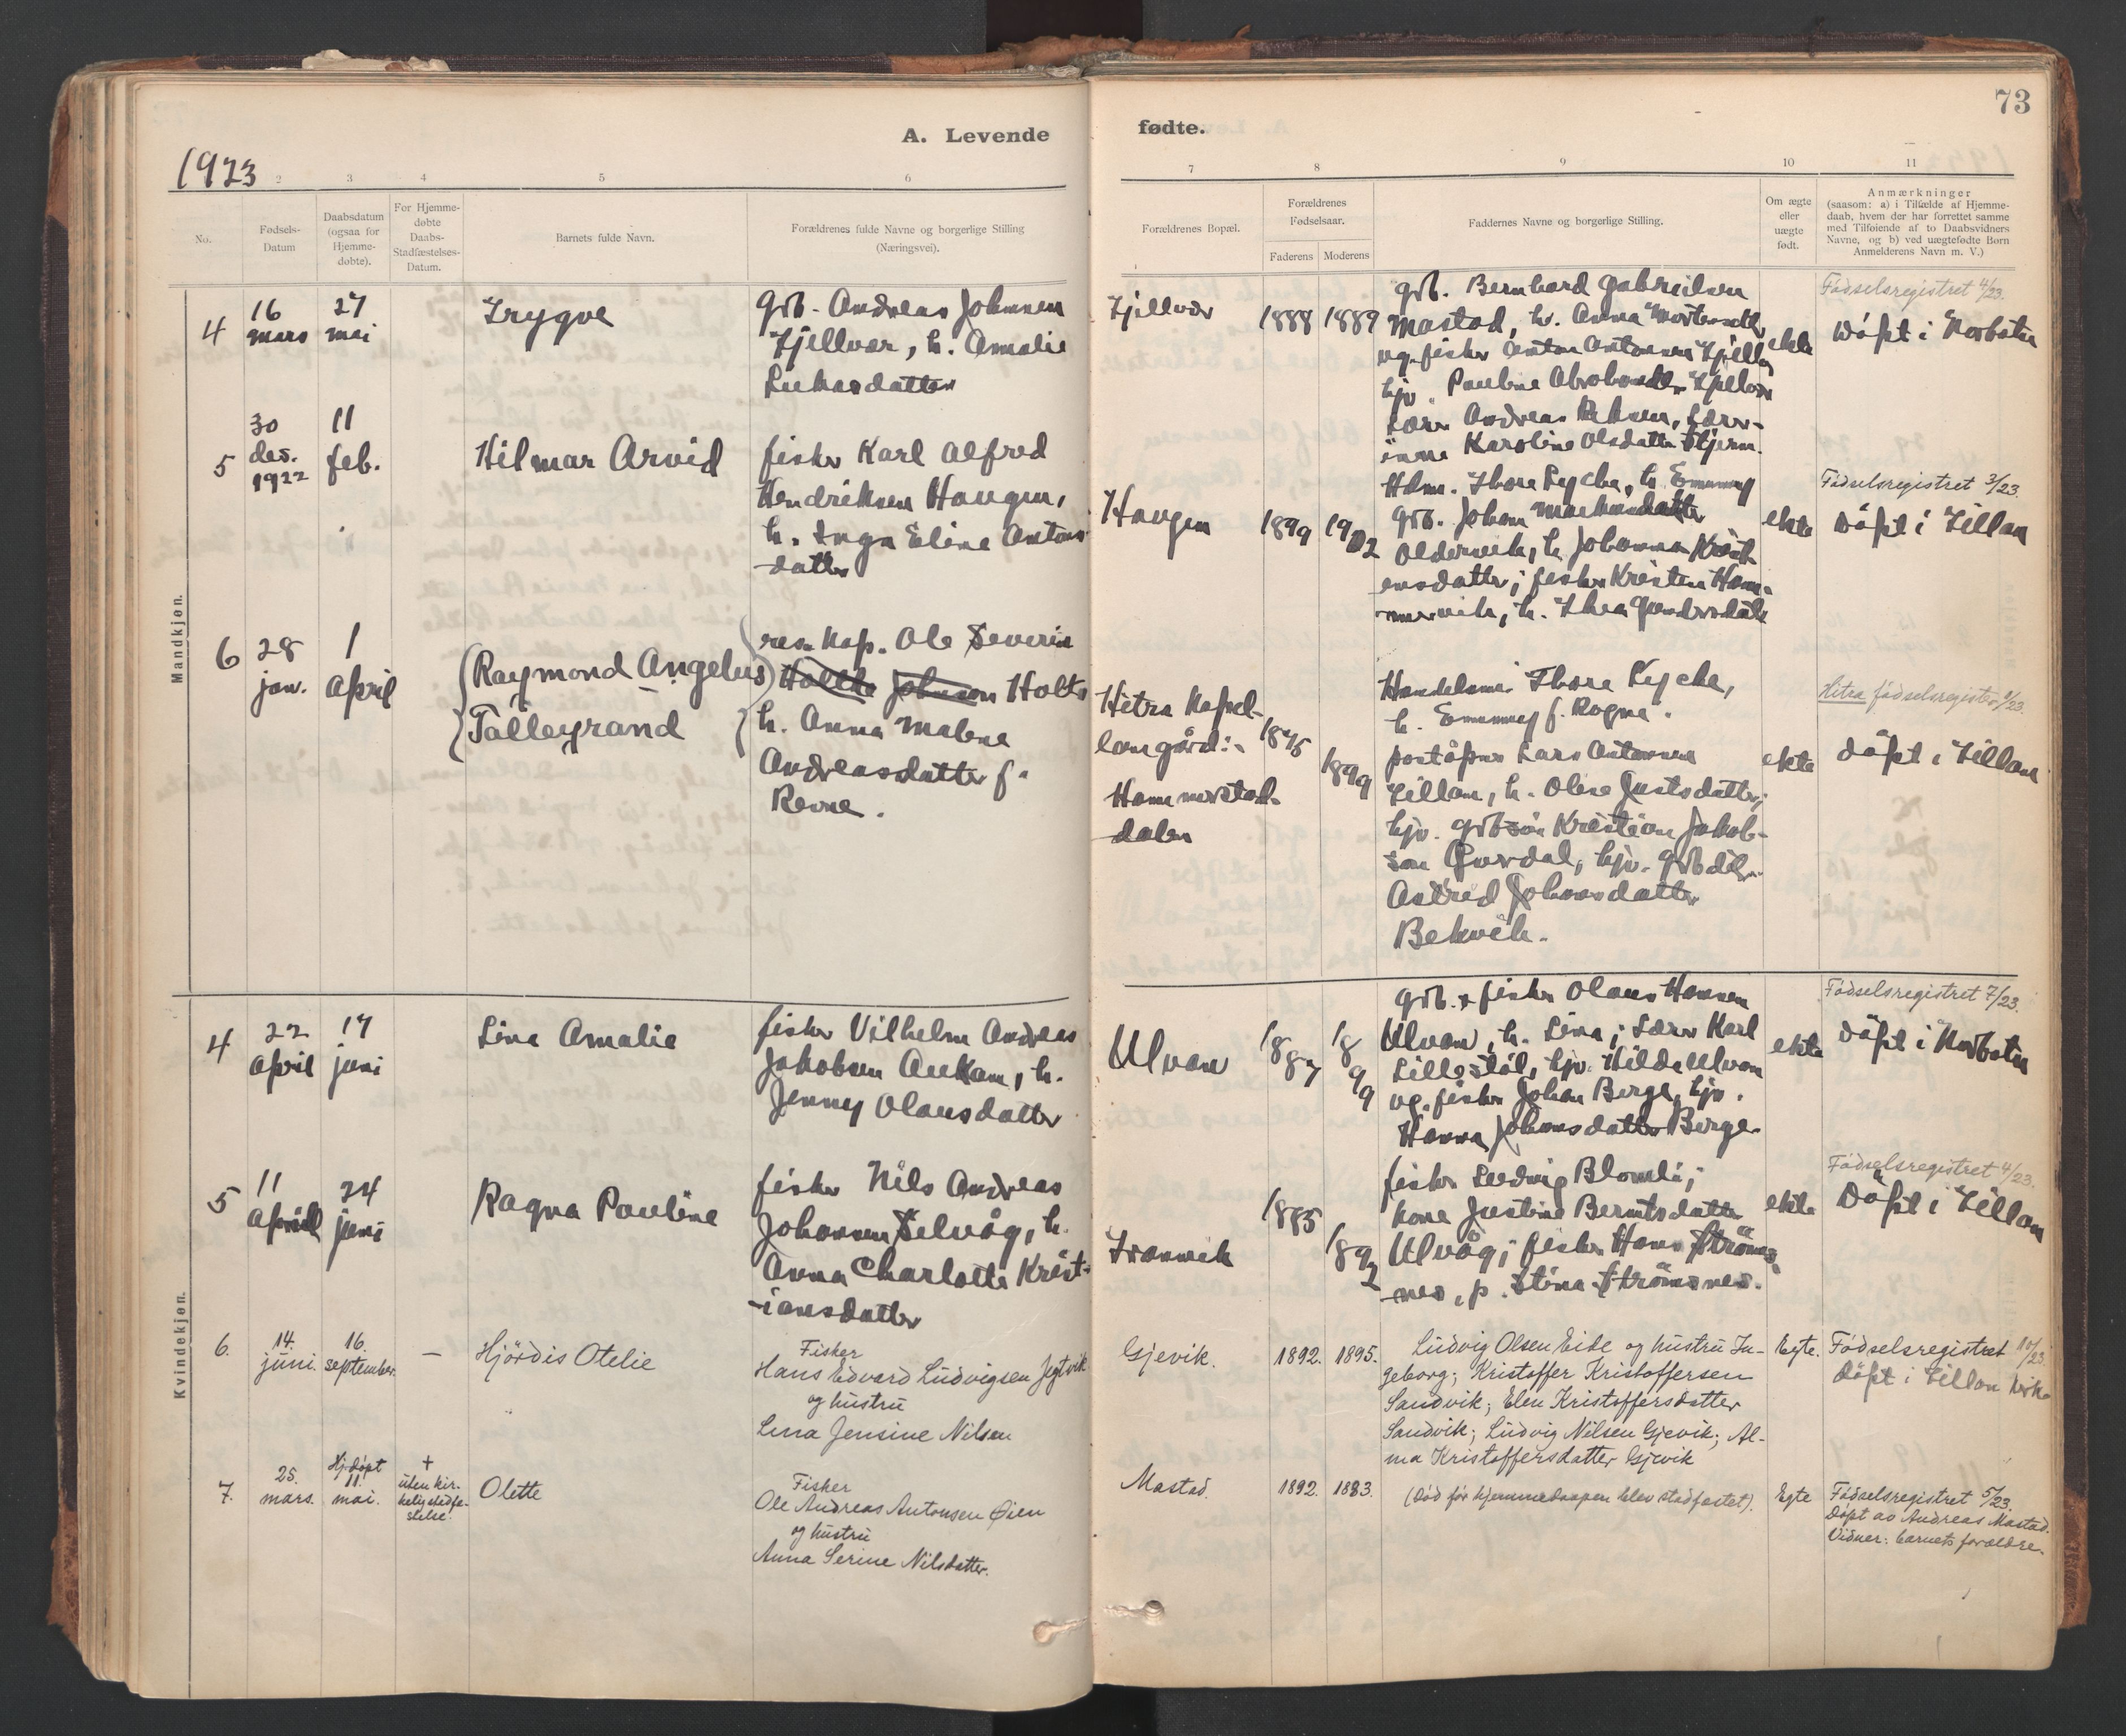 73
A. Levende
fødte.
1923
2
3
4
5
6
7
8
9
10
11
No.
Fødsels-
Datum
Daabsdatum
(ogsaa for
Hjemme-
døbte).
For Hjemme-
døbte
Daabs-
Stadfæstelses-
Datum.
Barnets fulde Navn.
Forældrenes fulde Navne og borgerlige Stilling
(Næringsvei).
Forældrenes Bopæl.
Forældrenes
Fødselsaar.
Faderens
Moderens
Faddernes Navne og borgerlige Stilling.
Om ægte
eller
uægte
født.
Anmærkninger
(saasom: a) i Tilfælde af Hjemme-
daab, hvem der har forrettet samme
med Tilføiende af to Daabsvidners
Navne, og b) ved uægtefødte Børn
Anmelderens Navn m. V.)
Mandkjøn.
4
16
mars
27
mai
Trygve
Grb. Andreas Johnsen
Fjellvær, h. Amalie
Lukasdatter
Fjellvær
1888
1889
Grb. Bernhard Gabrielsen
Mastad, h. Anna Mortensdtr
ug. fisker Anton Antonsen Fjellvær
hjv. Pauline Fjellvær
Lærer Andreas Lærer-
inne Karoline Olsdatter
ekte
Fødselsregistret 4/23.
Døpt i Nordbotn
5
30
des.
1922
11
feb.
Hilmar Arvid
fisker Karl Alfred
Hendriksen Haugen,
h. Inga Eline Antons-
datter
Haugen
1899
1902
Hdm. Thore Lycke, h. Emmy
Grb. Johan Markusdatter
Oldervik, h. Johanna Krist-
ensdatter; fisker Kristen Ham-
mervik, h. Thea
ekte
Fødselsregistret 3/23.
Døpt i Fillan
6
28
jan.
1
April
(Raymond Angelus)
Talleyrand
res. kap. Ole Severin
Johnson Holte
h. Anna Malene
Andreasdatter f.
Revne.
Hitra Kapel-
langård:
Hammerstad-
dalen
1875
1899
Handelsm. Thore Lycke,
h. Emmy f. Rogne.
poståpner Lars Antonsen
Fillan, h. Oline Justsdatter;
hjv. grbsøn Kristian Jakob-
sen hjv. grbdtr.
Astrid Johansdatter
Bekvik.
ekte
Hitra fødselsregister /23.
døpt i Fillan
Kvindekjøn.
4
22
April
17
juni
Lina Amalie
fisker Vilhelm Andreas
Jakobsen Aukan, h.
Jenny Olausdatter
Ulvan
1887
1899
Grb. & fisker Olaus Hansen
Ulvan, h. Lina; Lærer Karl
Lillestøl, hjv. Hilda Ulvan
ug. fisker Johan Berge, hjv.
Hanna Johansdatter Berge
ekte
Fødselsregistret 7/23.
døpt i Nordbotn
5
11
April
24
juni
Ragna Pauline
fisker Nils Andreas
Johansen Selvåg, h.
Anna Charlotte Krist-
iansdatter
Tranvik
1885
1892
fisker Ludvig Blomli;
kona Justine Berntsdatter
Ulvåg; fisker Hans Strøms-
nes, p. Stina Strømsnes.
ekte
Fødselsregistret 4/23.
Døpt i Fillan
6.
14.
juni.
16.
september.
—
Hjördis Otelie
Fisker
Hans Edvard Ludvigsen Jegtvik
og hustru
Lena Jensine Nilsen
Gjevik.
1892.
1895.
Ludvig Olsen Eide og hustru In-
geborg; Kristoffer Kristoffersen
Sandvik; Elen Kristoffersdatter
Sandvik; Ludvig Nilsen Gjevik; Al-
ma Kristoffersdatter Gjevik
Egte.
Fødselsregistret 10/23.
Døpt i Fillan kirke
7.
25.
mars.
Hj.døpt
11.
mai.
+
uten kir-
kelig stadfe-
stelse.
Olette
Fisker
Ole Andreas Antonsen Øien
og hustru
Anna Serine Nilsdatter.
Mastad.
1892.
1883.
(Død før hjemmedaapen blev stadfæstet).
Egte
Fødselsregistret 5/23.
Døpt av Andreas Mastad.
Vidner: barnets forældre.